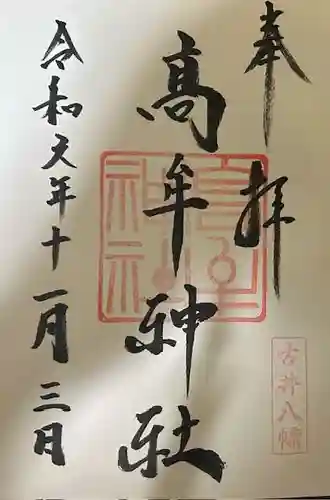 奉拝
古井八幡
髙牟神社
令和元年十一月三日